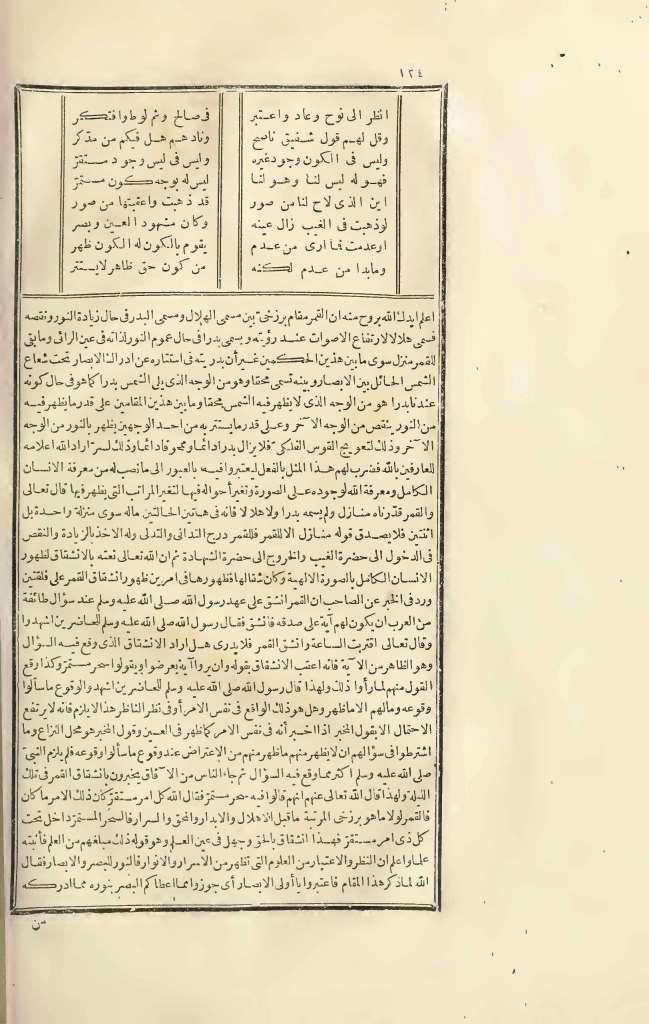 ١٢٤
انظر الى نوح وعاد واعتبر في صالح وثم لوط وافتكر
وقل لهم قول شفيق ناصح وناد هم هل فيكم من مدّكر
وليس في الكون وجود غيره وليس في ليس وجود مستقرّ
فهو له ليس لنا وهو لنا ليس له بوجه كون مستمرّ
اين الذى لاح لنا من صور قد ذهبت واعقبتها من صور
لوذهبت في الغيب زال عينه وكان مشهود العين وبصر
اوعدمت فما ارى من عدم يقوم بالكون له الكون ظهر
وما بدا من عدم لكنه من كون حق ظاهر لا يستتر
اعلم ايدك الله بروح منه ان القمر مقام برزخى بين مسمى الهلال ومسمى البدر في حال زيادة النور ونقصه
فسمى هلالا لارتفاع الاصوات عند رؤيته ويسمى بدرا في حال عموم النور لذاته في عين الرائى وما بقى
للقمر منزل سوى ما بين هذين الحكمين غير أن بدريته في استتاره عن ادراك الابصار تحت شعاع
الشمس الحائل بين الابصار وبينه تسمى محقا وهو من الوجه الذى يلى الشمس بدرا كما هو في حال كونه
عندنا بدرا هو من الوجه الذى لا يظهر فيه الشمس محقا وما بين هذين المقامين على قدر ما يظهر فيه
من النور ينقص من الوجه الآخر وعلى قدر ما يستتر به من احد الوجهين يظهر بالنور من الوجه
الآخر وذلك لتعويج القوس الفلكى فلا يزال بدرا دائما ومحقوقا دائما وذلك لسرّ اراد الله اعلامه
للعارفين بالله فضرب لهم هذا المثل بالفعل ليعتبروا فيه بالعبور الى ما نصبه له من معرفة الانسان
الكامل ومعرفة الله لوجوده على الصورة وتغير أحواله فيها لتغير المراتب التى يظهر فيها قال تعالى
والقمر قدّرناه منازل ولم يسمه بدرا ولا هلالا فانه في هاتين الحالتين ماله سوى منزلة واحدة بل
اثنتين فلا يصدق قوله منازل الا للقمر فللقمر درج التدانى والتدلى وله الاخذ بالزيادة والنقص
في الدخول الى حضرة الغيب والخروج الى حضرة الشهادة ثم ان الله تعالى نعته بالانشقاق لظهور
الانسان الكامل بالصورة الالهية وكان شقالها فظهورها في امرين ظهور انشقاق القمر على فلقتين
ورد في الخبر عن الصاحب ان القمر انشق على عهد رسول الله صلى الله عليه وسلم عند سؤال طائفة
من العرب ان يكون لهم آية على صدقه فانشق فقال رسول الله صلى الله عليه وسلم للحاضرين اشهدوا
وقال تعالى اقتربت الساعة وانشق القمر فلا يدرى هل اراد الانشقاق الذى وقع فيه السؤال
وهو الظاهر من الآية فانه اعقب الانشقاق بقوله وان يروا آية يعرضوا ويقولوا سحر مستمرّ وكذا وقع
القول منهم لما رأوا ذلك ولهذا قال رسول الله صلى الله عليه وسلم للحاضرين اشهدوا لوقوع ما سألوا
وقوعه ومالهم الا ما ظهر وهل هو ذلك الواقع في نفس الامر أو في نظر الناظر هذا لا يلزم فانه لا يرتفع
الاحتمال الا بقول المخبر اذا اخبر أنه في نفس الامر كما ظهر في العين وقول المخبر هو محل النزاع وما
اشترطوا في سؤالهم ان لا يظهر منهم ما ظهر منهم من الاعتراض عند وقوع ما سألوا وقوعه فلم يلزم النبىّ
صلى الله عليه وسلم اكثر مما وقع فيه السؤال ثم جاء الناس من الآفاق يخبرون بانشقاق القمر في تلك
الليلة ولهذا قال الله تعالى عنهم انهم قالوا فيه سحر مستمرّ فقال الله كل امر مستقرّ كان ذلك الامر ما كان
فالقمر لولا ما هو برزخى المرتبة ما قبل الاهلال والابدار والمحق والسرار فالسحر المستمرّ داخل تحت
كل ذى امر مستقرّ فهذا انشقاق بالحق وجهل في عين العلم وهو قوله ذلك مبلغهم من العلم فأثبته
علما واعلم ان النظر والاعتبار من العلوم التى تظهر من الاسرار والانوار فالنور للبصر والابصار فقال
الله لما ذكر هذا المقام فاعتبروا يا أولى الابصار أى جوزوا مما اعطاكم البصر بنوره مما ادركه
من